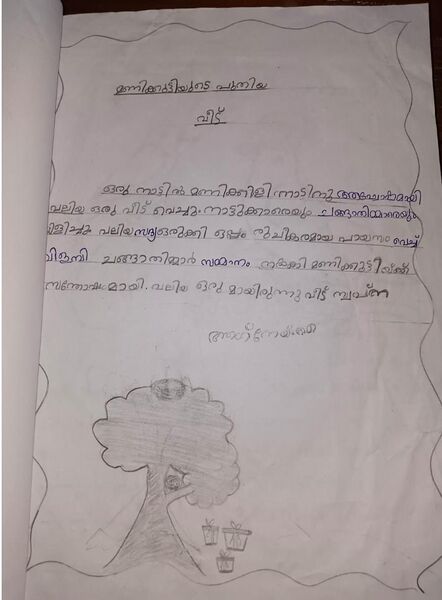 മണിക്കുട്ടിയുടെ പുതിയ
വീട്
ഒരു നാട്ടിൽ മണിക്കിളി നാടിനു ആഘോഷമായി
വലിയ ഒരു വീട് വെച്ചു. നാട്ടുക്കാരെയും ചങ്ങാതിമാരെയും
വിളിച്ചു വലിയ സദ്യ ഒരുക്കി ഒപ്പം രുചികരമായ പായസം വെച്ച്
വിളമ്പി ചങ്ങാതിമാർ സമ്മാനം നൽകി മണിക്കുട്ടിയ്ക്ക്
സന്തോഷമായി. വലിയ ഒരു മായിരുന്നു വീട് സ്വപ്ന